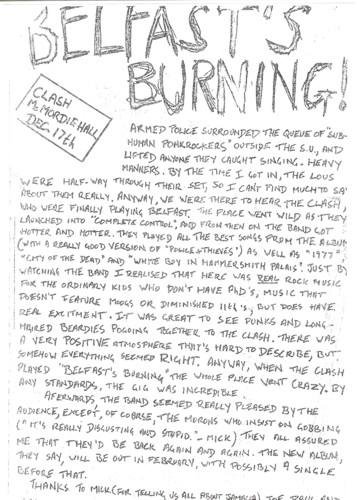 BELFAST'S
BURNING!
CLASH
McMORDIE HALL
DEC. 17th
ARMED POLICE SURROUNDED THE QUEUE OF "SUB-
HUMAN PONKROCKERS" OUTSIDE THE S.U., AND
LIFTED ANYONE THEY CAUGHT SINGING. HEAVY
MANNERS. BY THE TIME I GOT IN, THE LOUS
WERE HALF-WAY THROUGH THEIR SET, SO I CAN'T FIND MUCH TO SA
ABOUT THEM REALLY. ANYWAY, WE WERE THERE TO HEAR THE CLASH,
WHO WERE FINALLY PLAYING BELFAST. THE PLACE WENT WILD AS THEY
LAUNCHED INTO "COMPLETE CONTROL", AND FROM THEN ON THE BAND GOT
HOTTER AND HOTTER. THEY PLAYED ALL THE BEST SONGS FROM THE ALBUM
(WITH A REALLY GOOD VERSION OF "POLICE & THIEVES") AS WELL AS "1977",
"CITY OF THE DEAD" AND "WHITE BOY IN HAMMERSMITH PALAIS". JUST BY
WATCHING THE BAND I REALISED THAT HERE WAS REAL ROCK MUSIC
FOR THE ORDINARY KIDS WHO DON'T HAVE PhD's, MUSIC THAT
DOESN'T FEATURE MOOGS OR DIMINISHED 11th's, BUT DOES HAVE
REAL EXCITMENT. IT WAS GREAT TO SEE PUNKS AND LONG-
HAIRED BEARDIES POGOING TOGETHER TO THE CLASH. THERE WAS
A VERY POSITIVE ATMOSPHERE THAT'S HARD TO DESCRIBE, BUT
SOMEHOW EVERYTHING SEEMED RIGHT. ANYWAY, WHEN THE CLASH
PLAYED "BELFAST'S BURNING" THE WHOLE PLACE WENT CRAZY. BY
ANY STANDARDS, THE GIG WAS INCREDIBLE.
AFERWARDS, THE BAND SEEMED REALLY PLEASED BY THE
AUDIENCE, EXCEPT, OF COBRSE, THE MORONS WHO INSIST ON GOBBING
("IT'S REALLY DISGUSTING AND STUPID." - MICK) THEY ALL ASSURED
ME THAT THEY'D BE BACK AGAIN AND AGAIN. THE NEW ALBUM,
THEY SAY, WILL BE OUT IN FEBRUARY, WITH POSSIBLY A SINGLE
BEFORE THAT.
THANKS TO MICK (FOR TELLING US ALL ABOUT JAMAICA), JOE, PAUL AND